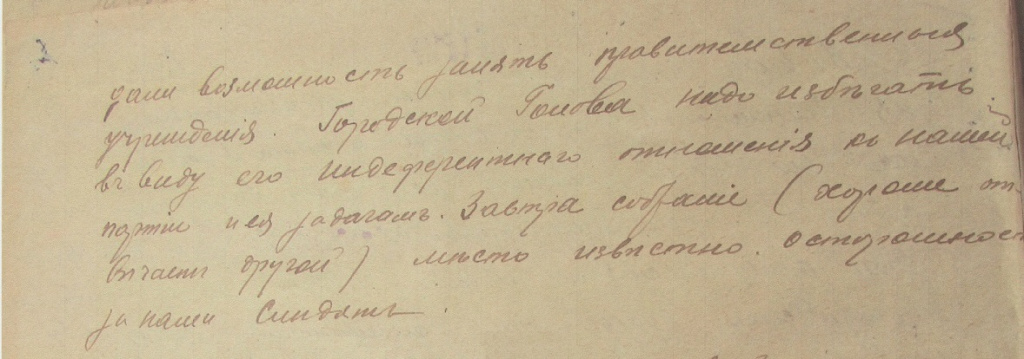 дали возможность занять правительственныя
учрежденія. Городской Голова надо избѣгать
въ виду его индеферентнаго отношенія къ нашей
партіи и ея задачамъ. Завтра собраніе (хорошо
части другой) мѣсто извѣстно. Осторожност
за нами слидятъ.